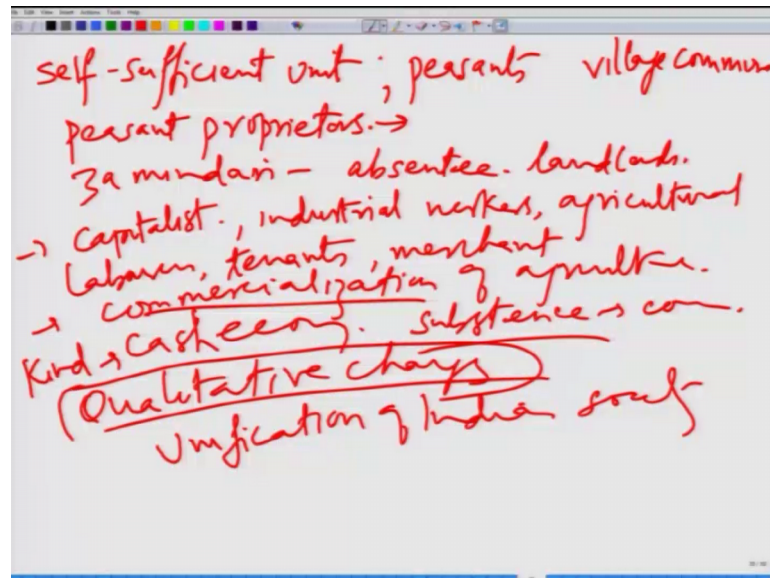 self-sufficient unit ; peasants village commun
peasant proprietors. →
Zamindari – absentee. landlords.
→ capitalist., industrial workers, agricultural
labourers, tenants, merchant
→ commercialization of agriculture.
Kind → cash economy. substence → com.
Qualitative changes
Unification of Indian society